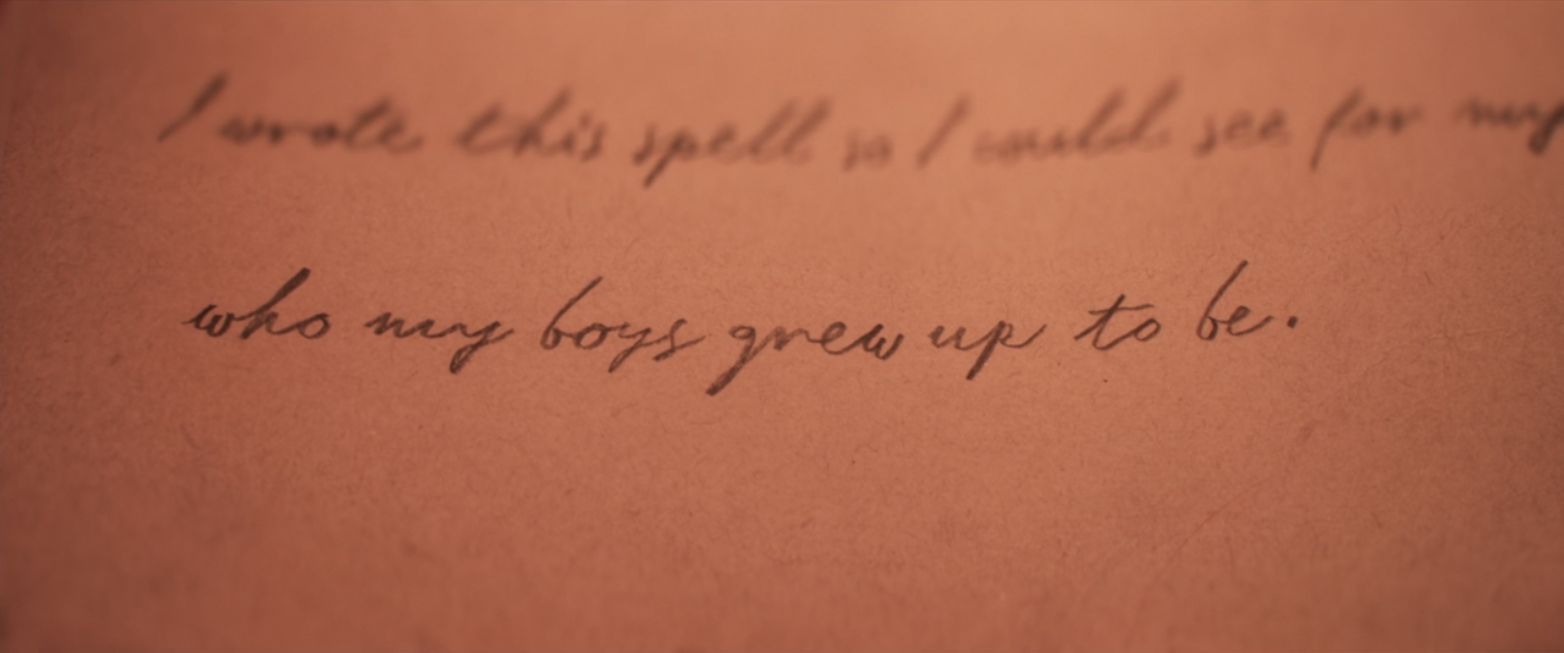 I wrote this spell so I could see for my
who my boys grew up to be.